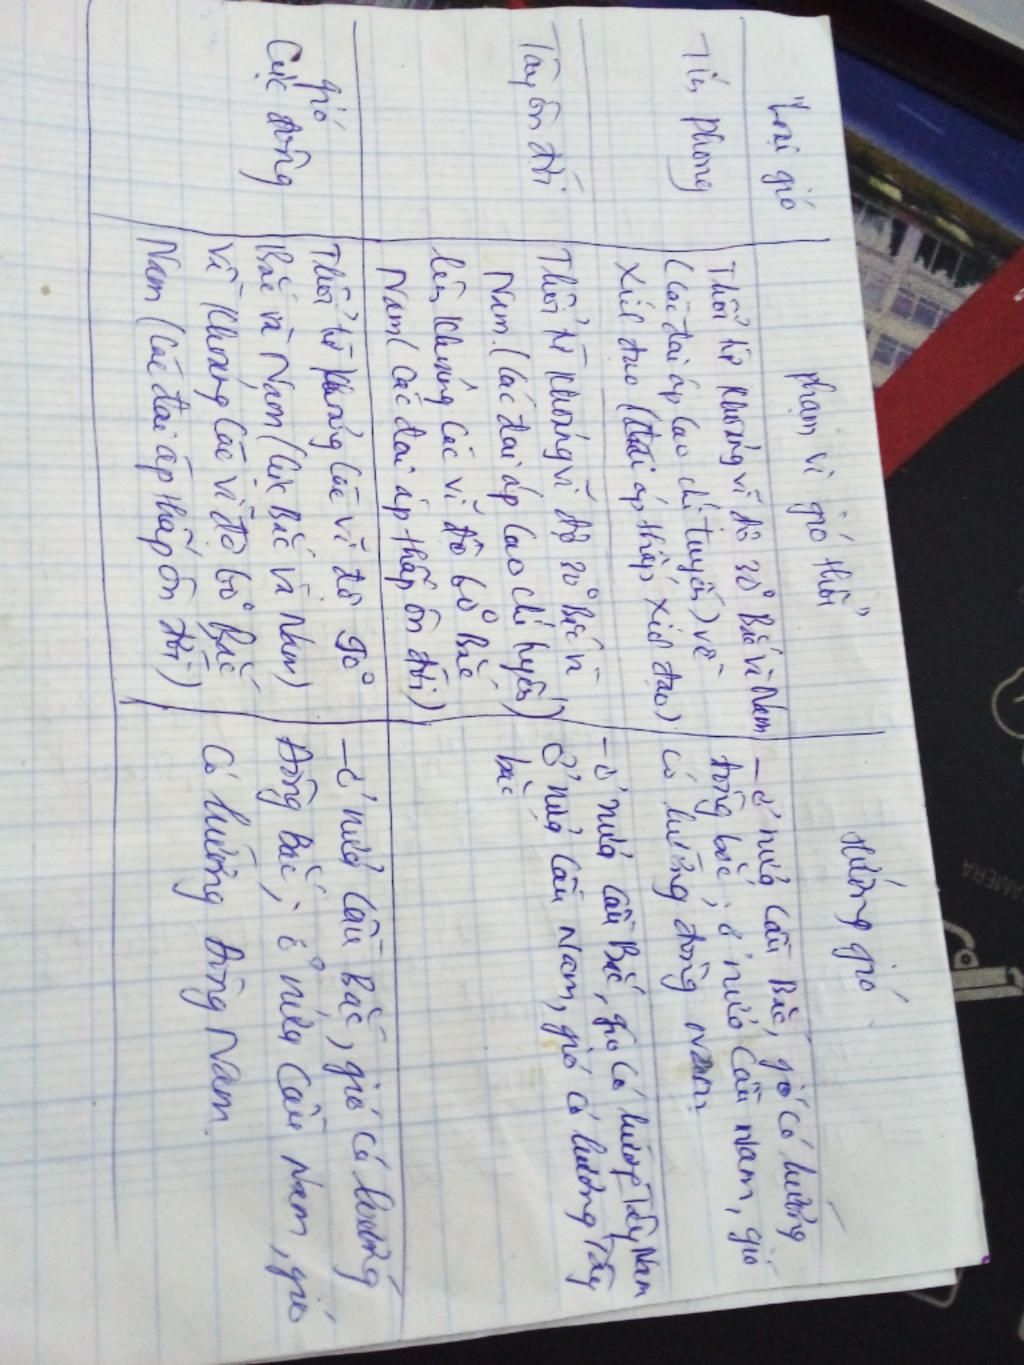 Loại gió
phạm vi gió thổi
Hướng gió
Tín phong
Thổi từ khoảng vĩ độ 30° Bắc và Nam
(các đai áp cao chí tuyến) về
xích đạo (đai áp thấp xích đạo)
- ở nửa cầu Bắc, gió có hướng
đông bắc; ở nửa cầu Nam, gió
có hướng đông nam
Tây ôn đới
Thổi từ khoảng vĩ độ 30° Bắc và
Nam (các đai áp cao chí tuyến)
lên khoảng các vĩ độ 60° Bắc,
Nam (các đai áp thấp ôn đới)
- ở nửa cầu Bắc, gió có hướng Tây Nam
ở nửa cầu Nam, gió có hướng Tây
bắc
gió
Cực đông
Thổi từ khoảng các vĩ độ 90°
Bắc và Nam (cực Bắc và Nam)
về khoảng các vĩ độ 60° Bắc
Nam (các đai áp thấp ôn đới)
- ở nửa cầu bắc, gió có hướng
Đông Bắc; ở nửa cầu Nam, gió
có hướng Đông Nam.
CAMERA